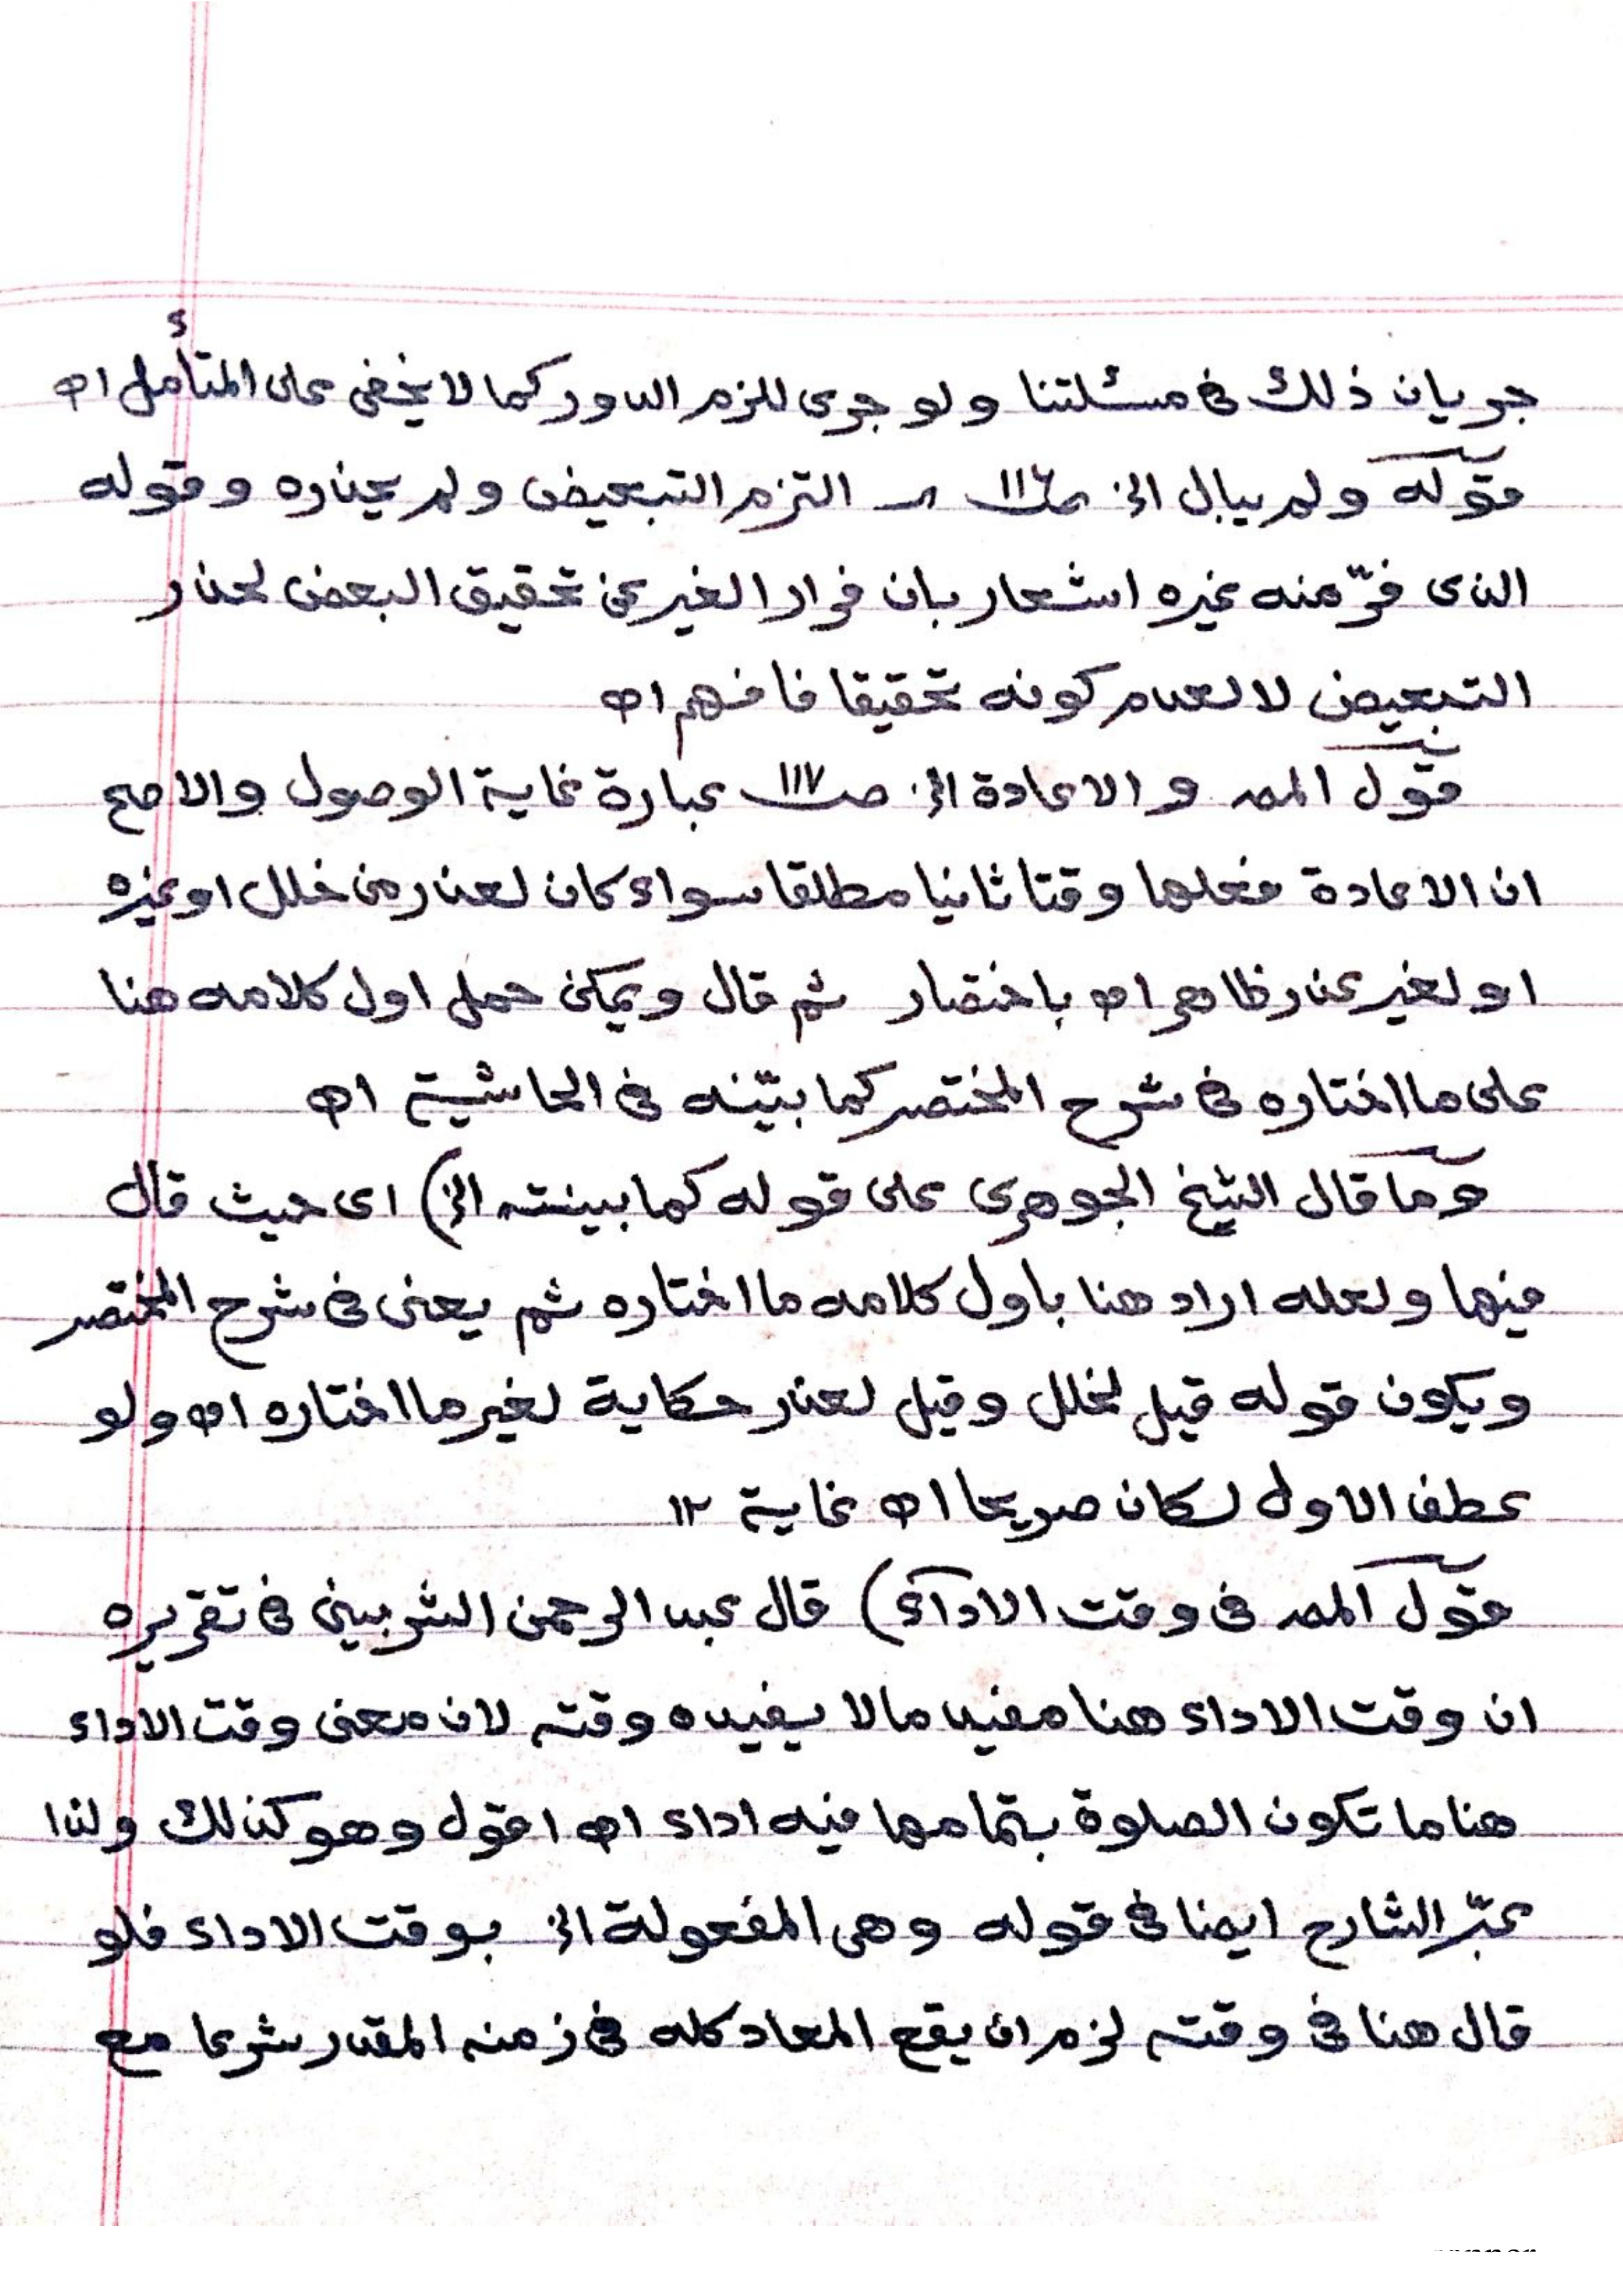 جريان ذلك فى مسئلتنا ولو جرى للزم الدور كما لا يخفى على المتأمل اه
قوله ولم يبال الخ صـ ١١٦ التزم التبعيض ولم يحذره وقوله
الذى فرّ منه غيره اشعار بان فرار الغير عن تحقيق البعض لحذر
التبعيض لا لعدم كونه تحقيقا فافهم اه
قول المصـ والاعادة الخ صـ ١١٧ عبارة غاية الوصول والاصح
ان الاعادة فعلها وقتا ثانيا مطلقا سواء كان لعذر من خلل او غيره
او لغير عذر ظاهر اه باختصار ثم قال ويمكن حمل اول كلامه هنا
على ما اختاره فى شرح المختصر كما بيّنه فى الحاشية اه
وما قال الشيخ الجوهرى على قوله كما بينته الخ) اى حيث قال
فيها ولعله اراد هنا باول كلامه ما اختاره ثم يعنى فى شرح المختصر
ويكون قوله قيل لخلل وقيل لعذر حكاية لغير ما اختاره اه ولو
عطف الاول لكان صريحا اه غاية ١٢
قول المصـ فى وقت الاداء) قال عبد الرحمن الشربينى فى تقريره
ان وقت الاداء هنا مفيد مالا يفيده وقته لان معنى وقت الاداء
هنا ما تكون الصلوة بتمامها فيه اداء اه اقول وهو كذلك ولذا
عبّر الشارح ايضا فى قوله وهى المفعولة الخ بوقت الاداء فلو
قال هنا فى وقته لزم ان يقع المعاد كله فى زمنه المقدر شرعا مع